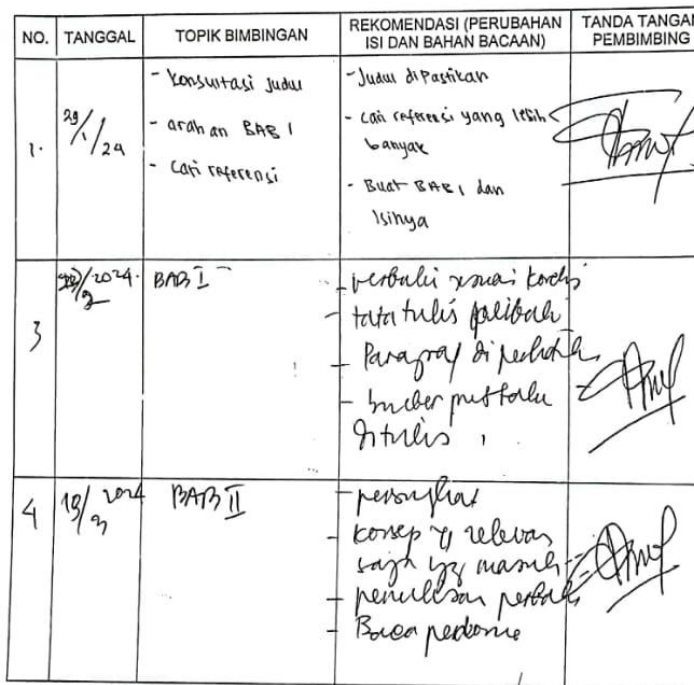 NO. TANGGAL TOPIK BIMBINGAN REKOMENDASI (PERUBAHAN ISI DAN BAHAN BACAAN) TANDA TANGAN PEMBIMBING
1. 29/1/24
- Konsultasi Judul
- arahan BAB 1
- Cari referensi
- Judul dipastikan
- Cari referensi yang lebih
banyak
- Buat BAB 1 dan
Isinya
3 /2 2024. BAB I
- perbaiki sesuai
- tata tulis
- Paragraf di
- sumber pustaka
ditulis
4 /3 2024 BAB II
- persingkat
- konsep yg relevan
saja yg masuk
- penulisan
- Baca pedoman